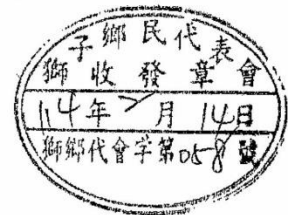 獅子鄉民代表會
收發章
114年2月14日
獅鄉代會字第058號